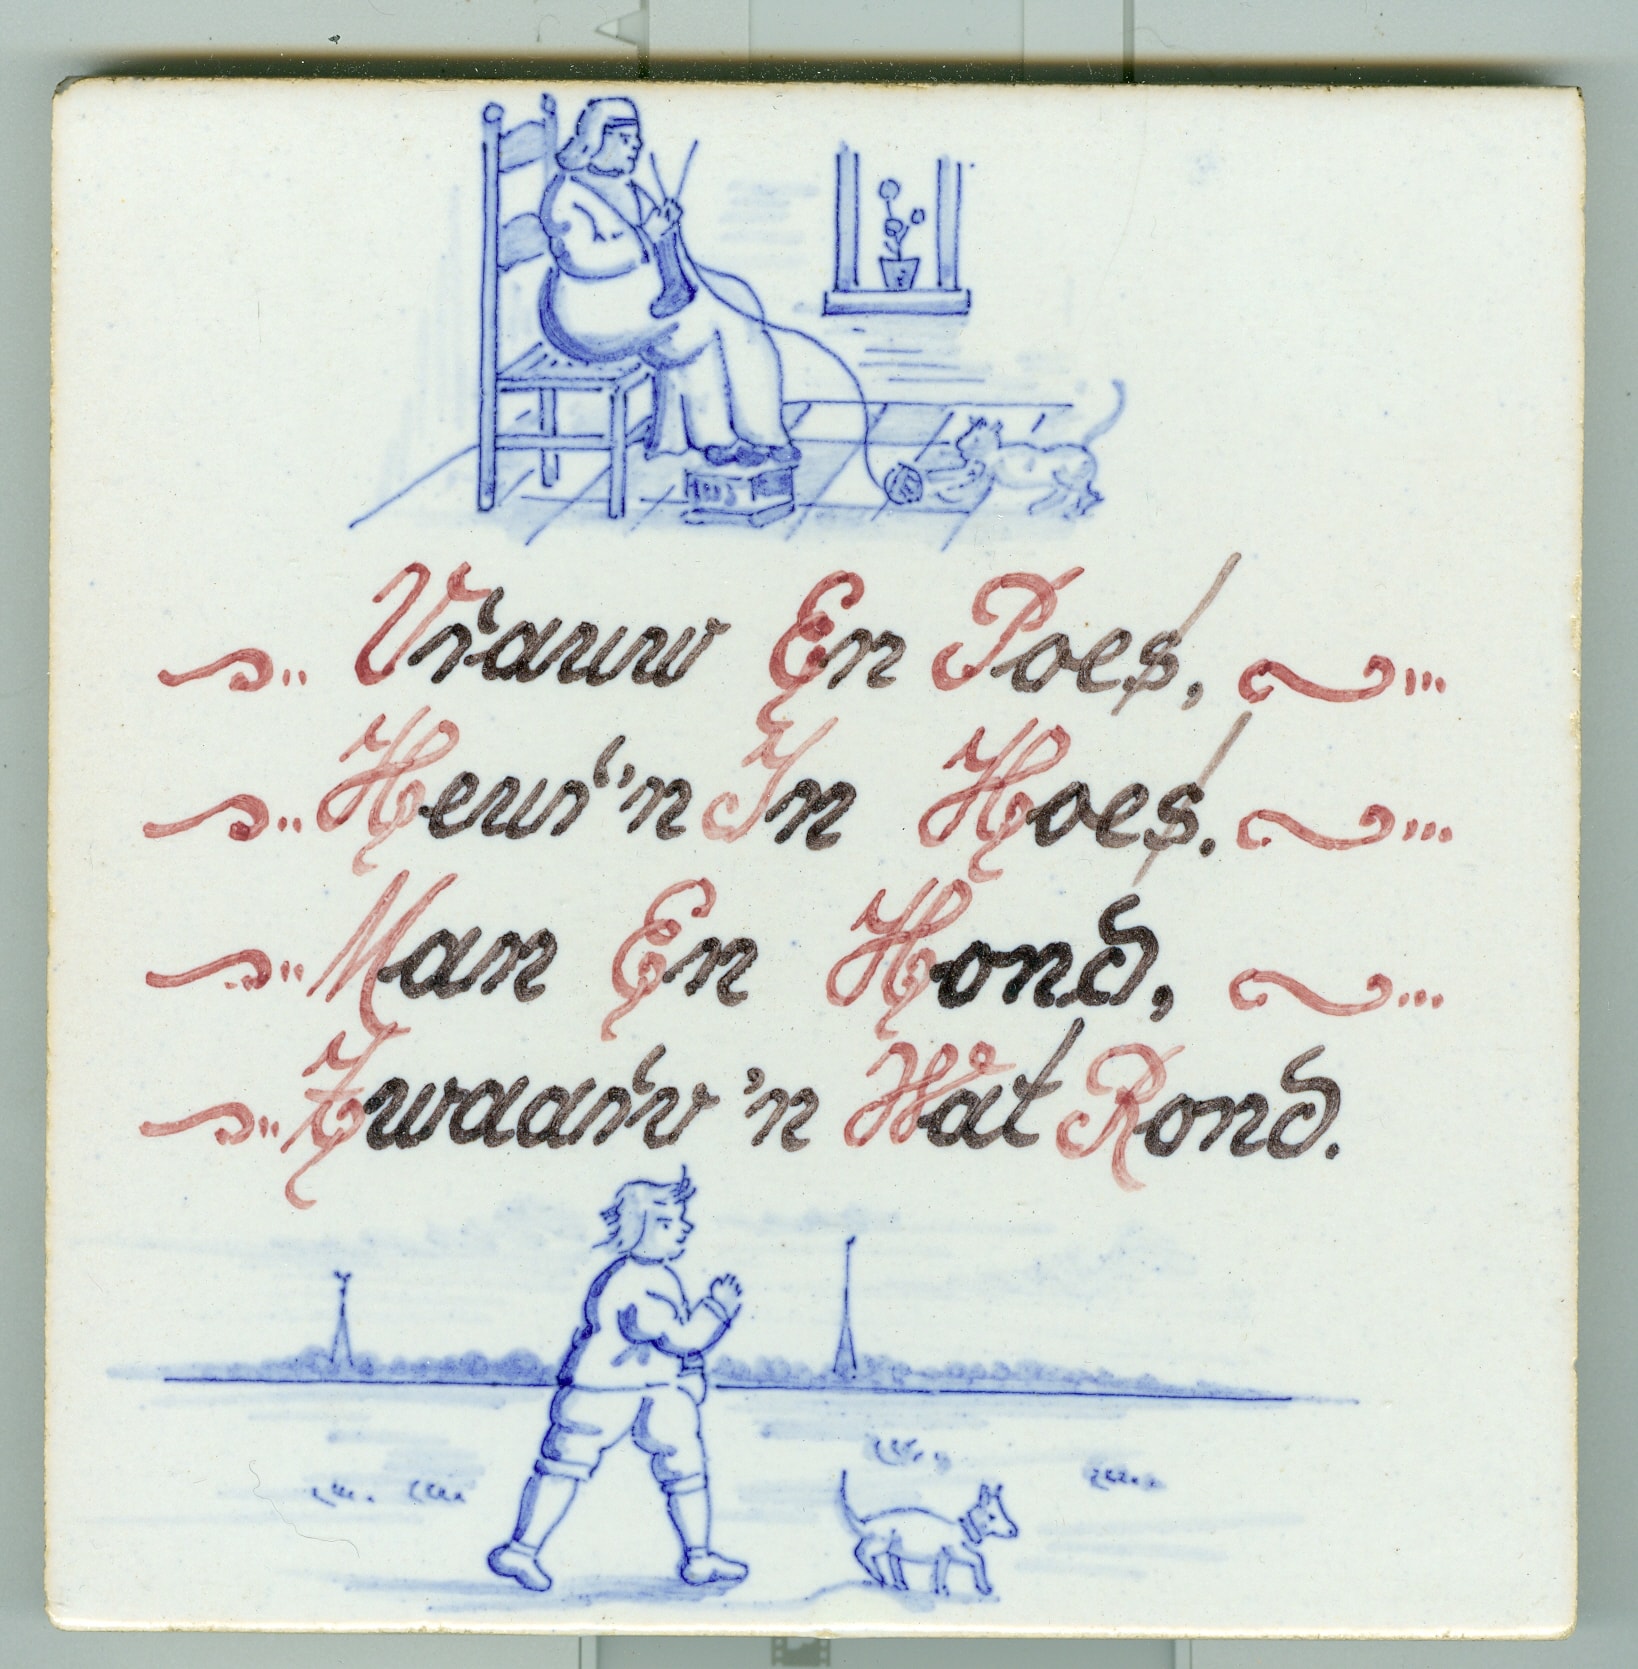 Vrauw En Poes,
Heur'n In Hoes.
Man En Hond,
Zwaarv'n Wat Rond.